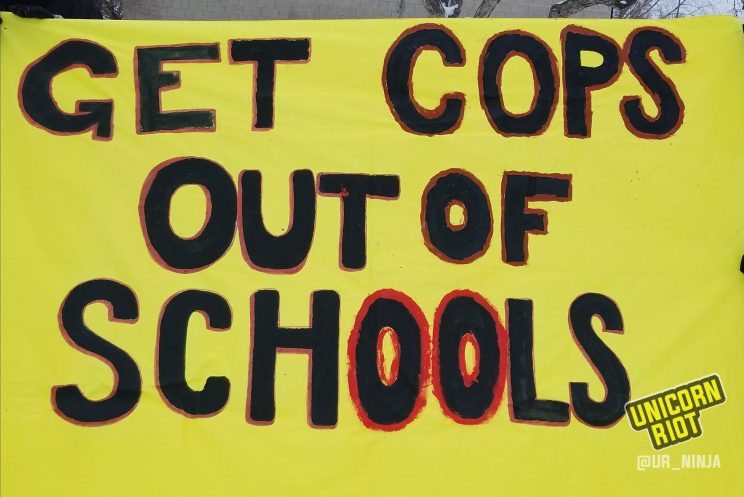 GET COPS
OUT OF
SCHOOLS
UNICORN
RIOT
@UR_NINJA